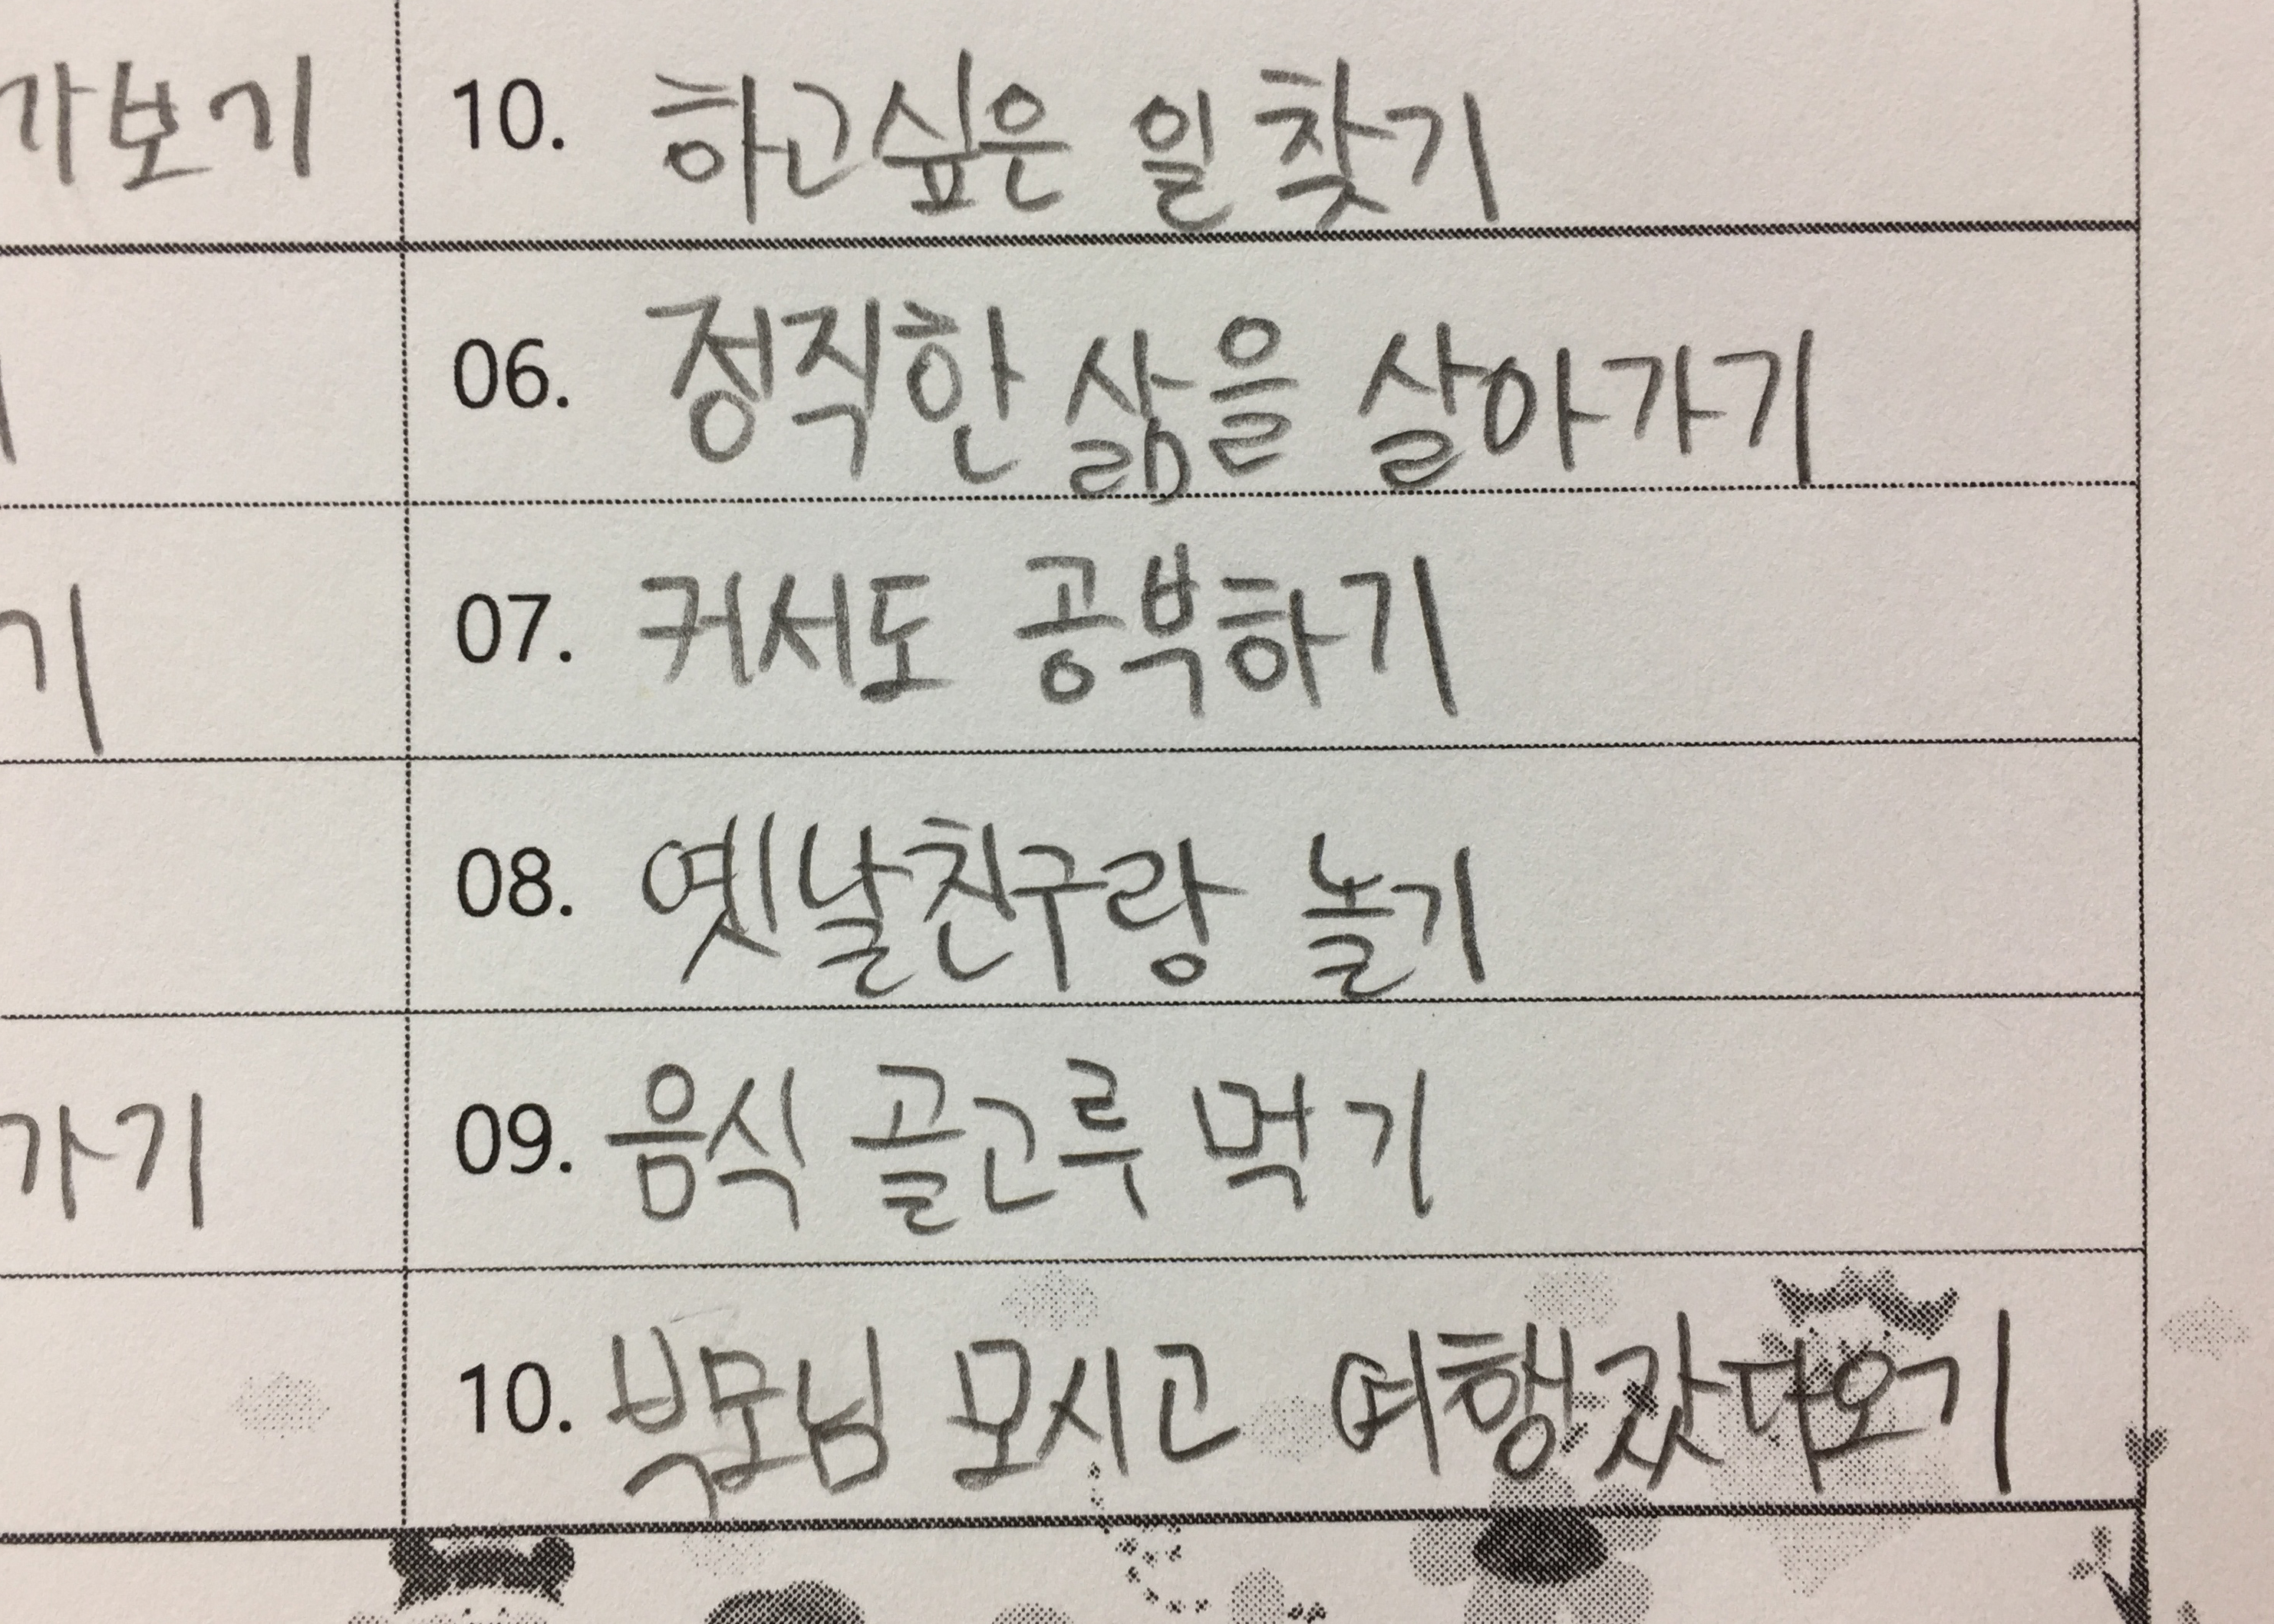 가보기 10. 하고싶은 일 찾기
06. 정직한 삶을 살아가기
기 07. 커서도 공부하기
08. 옛날친구랑 놀기
가기 09. 음식 골고루 먹기
10. 부모님 모시고 여행갔다오기